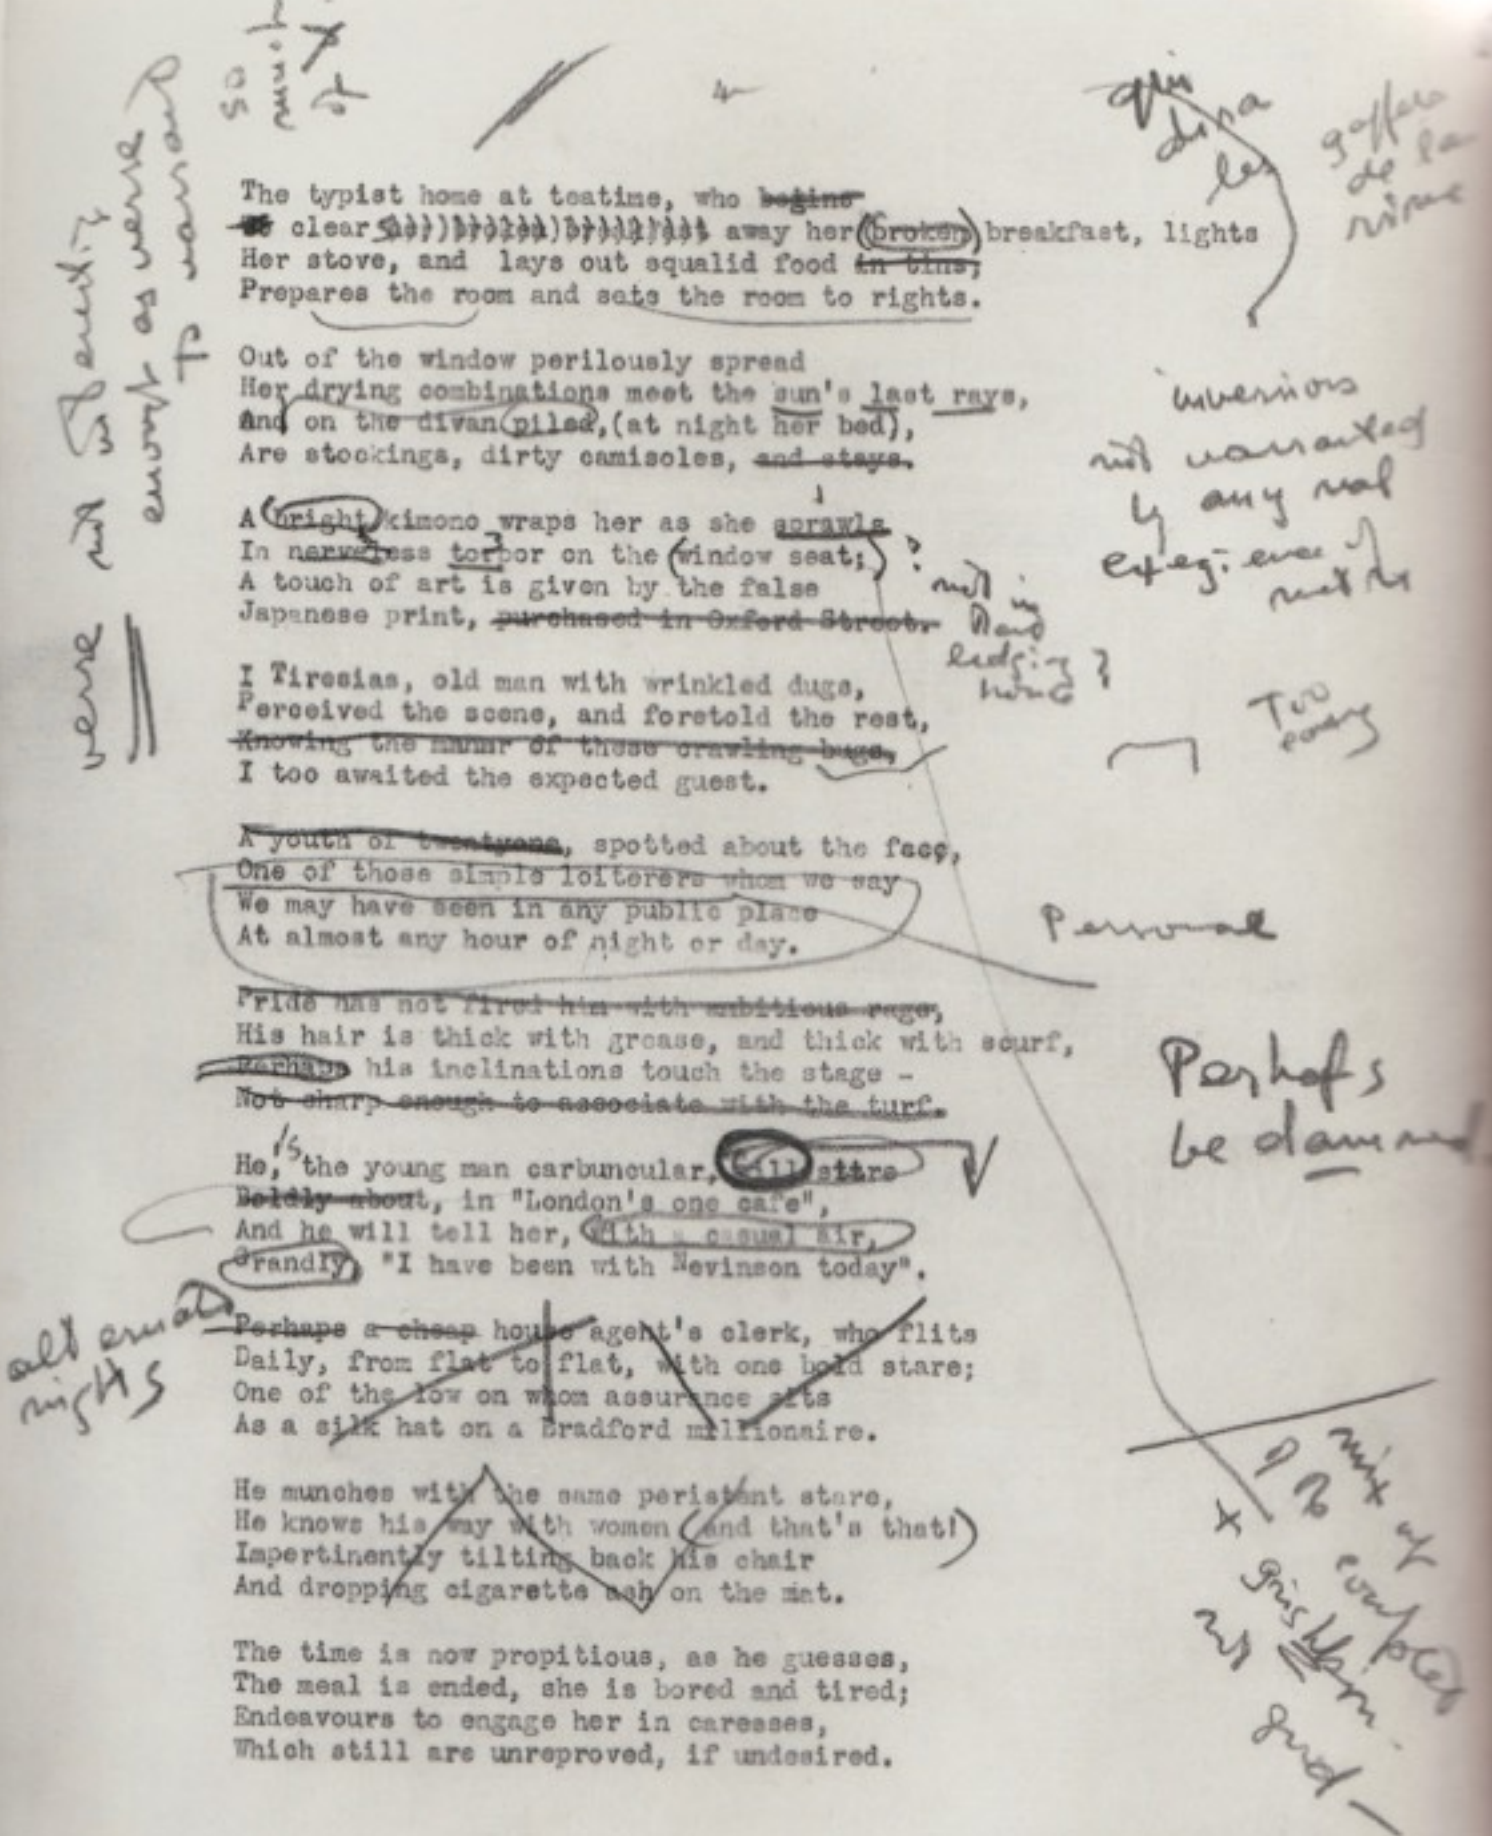 so
much
of
4
qui
dira
les
gaffers
de la
rime
verse not interesting
enough as verse
to warrant
The typist home at teatime, who begins
To clear away her broken breakfast, lights
Her stove, and lays out squalid food in tins;
Prepares the room and sets the room to rights.
Out of the window perilously spread
Her drying combinations meet the sun's last rays,
And on the divan piled, (at night her bed),
Are stockings, dirty camisoles, and stays.
inversions
not warranted
by any real
exegience of
metre
A bright kimono wraps her as she sprawls
In nerveless torpor on the window seat; ?
A touch of art is given by the false
Japanese print, purchased in Oxford Street.
not in
lodging
house ?
I Tiresias, old man with wrinkled dugs,
Perceived the scene, and foretold the rest,
Knowing the manner of these crawling bugs,
I too awaited the expected guest.
Too
easy
A youth of twentyone, spotted about the face,
One of those simple loiterers whom we say
We may have seen in any public place
At almost any hour of night or day.
Personal
Pride has not fired him with ambitious rage,
His hair is thick with grease, and thick with scurf,
Perhaps his inclinations touch the stage -
Not sharp enough to associate with the turf.
Perhaps
be damned
is
He, the young man carbuncular, will stare
Boldly about, in "London's one cafe",
And he will tell her, with a casual air,
Grandly, "I have been with Nevinson today".
alternate
nights
Perhaps a cheap house agent's clerk, who flits
Daily, from flat to flat, with one bold stare;
One of the low on whom assurance sits
As a silk hat on a Bradford millionaire.
He munches with the same peristent stare,
He knows his way with women (and that's that!)
Impertinently tilting back his chair
And dropping cigarette ash on the mat.
mix of
couplet
+ grishkin
not good —
The time is now propitious, as he guesses,
The meal is ended, she is bored and tired;
Endeavours to engage her in caresses,
Which still are unreproved, if undesired.